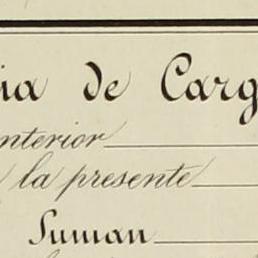 ia de Carg
nterior
la presente
Suman